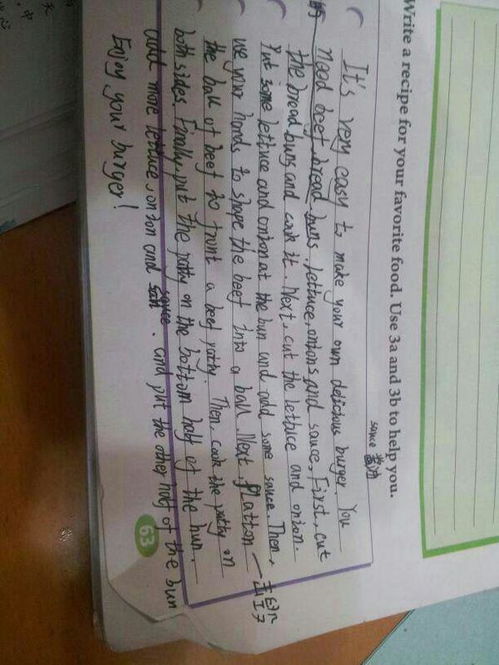 Write a recipe for your favorite food. Use 3a and 3b to help you.
sauce 酱油
It's very easy to make your own delicious burger. You
need beef, bread buns, lettuce, onions, and sauce. First, cut
the bread buns and cook it. Next, cut the lettuce and onion.
Put some lettuce and onion at the bun and add some sauce. Then,
use your hands to shape the beef into a ball. Next, flatton
the ball of beef to a beef patty. Then, cook the patty on
both sides. Finally, put the patty on the bottom half of the bun,
add more lettuce, onion and sauce. and put the other half of the bun
Enjoy your burger!
63